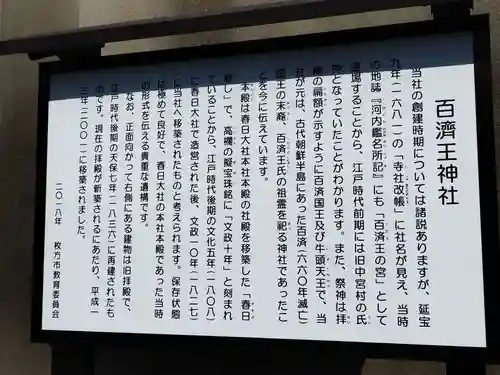 百濟王神社
当社の創建時期については諸説ありますが、延宝
九年(一六八一)の「寺社改帳」に社名が見え、当時
の地誌『河内鑑名所記』にも「百済王の宮」として
登場することから、江戸時代前期には旧中宮村の氏
神となっていたことがわかります。また、祭神は拝
殿の扁額が示すように百済国王及び牛頭天王で、当
社が元は、古代朝鮮半島にあった百済(六六〇年滅亡)
国王の末裔、百済王氏の祖霊を祀る神社であったこ
とを今に伝えています。
本殿は春日大社本社本殿の社殿を移築した「春日
移し」で、高欄の擬宝珠銘に「文政十年」と刻まれ
ていることから、江戸時代後期の文化五年(一八〇八)
に春日大社で造営された後、文政一〇年(一八二七)
に当社へ移築されたものと考えられます。保存状態
は極めて良好で、春日大社の本社本殿であった当時
の形式を伝える貴重な遺構です。
なお、正面向かって右側にある建物は旧拝殿で、
江戸時代後期の天保七年(一八三六)に再建されたも
のです。現在の拝殿が新築されるにあたり、平成一
三年(二〇〇一)に移築されました。
二〇一八年 枚方市教育委員会